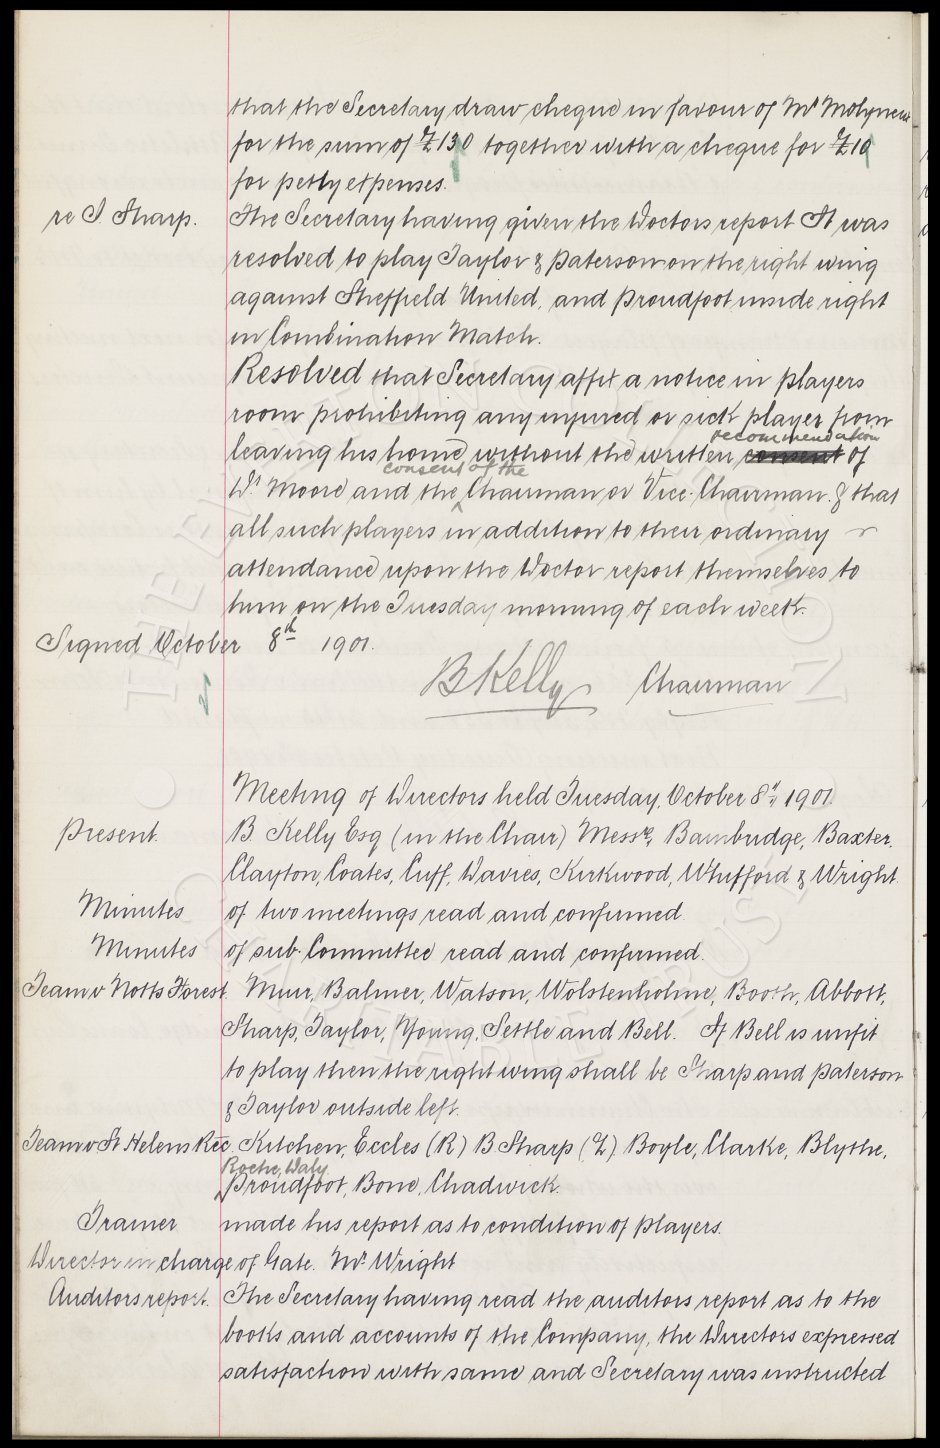 that the Secretary draw cheque in favour of Mr Molyneux
for the sum of £130 together with a cheque for £10
for petty expenses.
re J Sharp. The Secretary having given the Doctors report It was
resolved to play Taylor & Paterson on the right wing
against Sheffield United, and Proudfoot inside right
in Combination Match.
Resolved that Secretary affix a notice in players
room prohibiting any injured or sick player from
recommendation
leaving his home without the written consent of
consent of the
Dr Moore and the Chairman or Vice-Chairman. & that
all such players in addition to their ordinary
attendance upon the Doctor report themselves to
him on the Tuesday morning of each week.
Signed October 8th 1901.
B Kelly Chairman
Meeting of Directors held Tuesday, October 8th, 1901
Present. B. Kelly Esq (in the Chair) Messrs, Bainbridge, Baxter,
Clayton, Coates, Cuff, Davies, Kirkwood, Whifford & Wright.
Minutes of two meetings read and confirmed.
Minutes of sub-Committee read and confirmed.
Team v Notts Forest. Muir, Balmer, Watson, Wolstenholme, Booth, Abbott,
Sharp, Taylor, Young, Settle and Bell. If Bell is unfit
to play then the right wing shall be Sharp and Paterson
& Taylor outside left.
Team v St Helens Rec. Kitchen, Eccles (R) B Sharp (L) Boyle, Clarke, Blythe,
Roche, Daly
Proudfoot, Bone, Chadwick.
Trainer made his report as to condition of players.
Director in charge of Gate. Mr Wright
Auditors report. The Secretary having read the auditors report as to the
books and accounts of the Company, the Directors expressed
satisfaction with same and Secretary was instructed